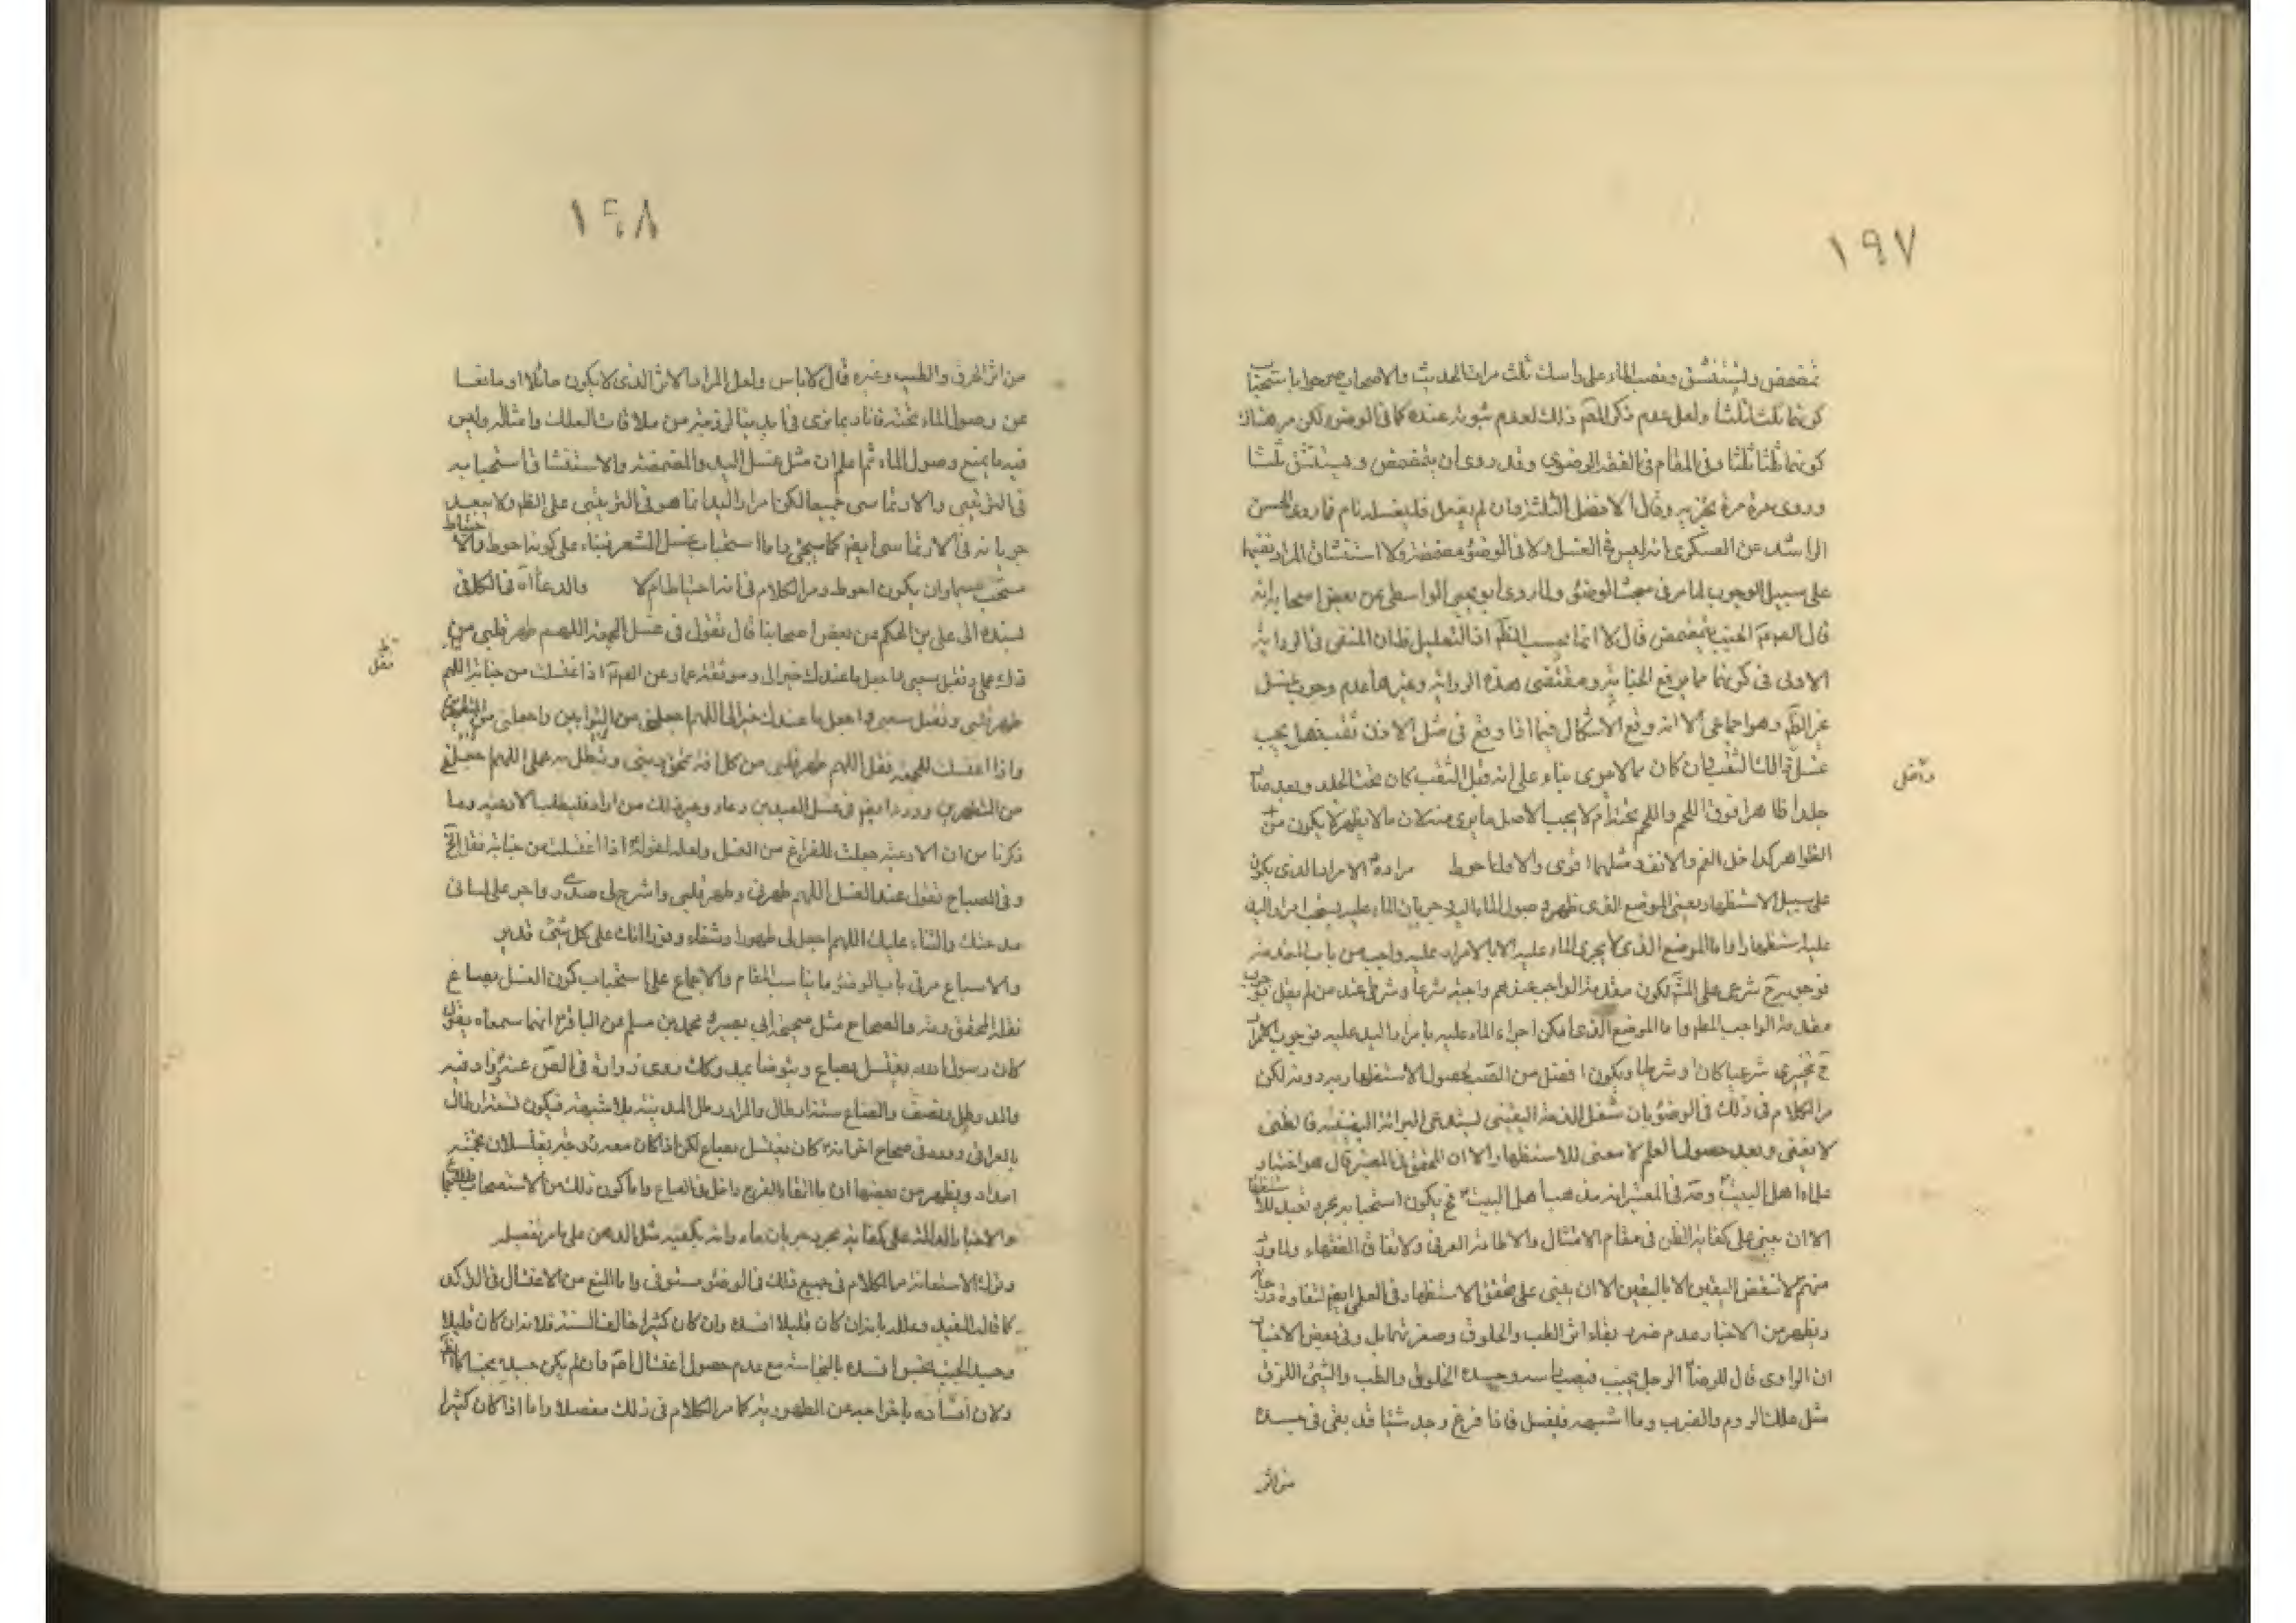 ١٩٧
تمضمض وليستنشق وتصب الماء على راسك ثلث مرات الحديث والاصحاب صرحوا باستحباب
كونهما ثلثا ثلثا ولعل عدم ذكر المصم ذلك لعدم ثبوته عنده كما في الوضوء لكن مر هناك
كونهما ثلثا ثلثا وفي المقام في الفقه الرضوي وقد روى ان يتمضمض ويستنشق ثلثا
وروى مرة مرة يجزيه وقال الافضل الثلثة وان لم يفعل فليغسله تام فما روى الحسن
الراشد عن العسكرى انه ليس في الغسل ولا في الوضوء مضمضة ولا استنشاق المراد نفيهما
على سبيل الوجوب لما مر في مبحث الوضوء ولما روى ابو يحيى الواسطى عن بعض اصحابه انه
قال للصم الجنب يتمضمض قال لا انما يجنب الظم اذ التعليل ظ ان المنفى في الرواية
الاولى في كونهما مما يرفع الجنابة ومقتضى هذه الرواية وغيرها عدم وجوب غسل
غير الظم وهو اجماعى الا انه وقع الاشكال فيما اذا وقع في مثل الاذن ثقب فهل يجب
غسل ذلك الثقب فان كان مما لا يرى بناء على انه قبل الثقب كان تحت الجلد وبعد صار
داخلى
جلدا ظاهرا فوق اللحم واللحم تحته ام لا يجب الاصل ما يرى منه لان ما لا يظهر لا يكون من
الظواهر كداخل الفم والانف ومثلهما اقوى والاول احوط مراده الامرار الذى يكون
على سبيل الاستظهار يعنى الموضع الذى ظهر وصول الماء اليه وجريان الماء عليه يستحب امرار اليد
عليه استظهارا واما الموضع الذى لا يجرى الماء عليه الا بالامرار عليه واجب من باب المقدمة
فوجوبه ح شرعى على المش لكون مقدمة الواجب عندهم واجبة شرعا وشرطى عند من لم يقل بوجوب
مقدمة الواجب المطم واما الموضع الذى امكن اجراء الماء عليه بامرار اليد عليه فوجوب الامرار
ح تخييرى شرعيا كان او شرطيا ويكون افضل من الصب لحصول الاستظهار به دونه لكن
مر الكلام في ذلك في الوضوء بان شغل الذمة اليقينى يستدعى البراءة اليقينية فالظنى
لا يغنى وبعد حصول العلم لا معنى للاستظهار الا ان المحقق في المعتبر قال هو اختيار
علماء اهل البيت وصرح في المعتبر انه مذهب اهل البيت فح يكون استحبابه بمجرد تعبد للاستظهار
الا ان يبنى على كفاية الظن في مقام الامتثال والاطاعة العرفى ولاتفاق الفقهاء ولما ورد
منهم لا تنقض اليقين الا باليقين الا ان يبنى على تحقق الاستظهار في العلم ايضم لتفاوت درجاته
ويظهر من الاخبار عدم ضرر بقاء اثر الطيب والخلوق وصفرته وفى بعض الاخبار
ان الراوى قال للرضا الرجل يجنب فيصيب راسه وجسده الخلوق والطيب والشئ اللزق
مثل علك الروم والضرب وما اشبهه فيغتسل فاذا فرغ وجد شيئا قد بقى في جسده
من اثر
١٩٨
من اثر الخلوق والطيب وغيره قال لا باس ولعل المراد بالاثر الذى لا يكون حائلا او مانعا
عن وصول الماء تحته فانا ربما نرى في ابداننا لزوجة من ملاقات العلك وامثاله وليس
فيه ما يمنع وصول الماء ثم اعلم ان مثل غسل اليد والمضمضة والاستنشاق استحبابه
في الترتيبى والارتماسى جميعا لكن امرار اليد انما هو في الترتيبى على الظم ولا يبعد
جريانه في الارتماسى ايضم كما سيجئ واما استحباب غسل الشعر فبناء على كونه احوط والاحتياط
مستحب سيما وان يكون احوط ومر الكلام في انه احتياط ام لا والدعاء اه في الكافى
بسنده الى على بن الحكم عن بعض اصحابنا قال تقول في غسل الجمعة اللهم طهر قلبى من
تبطل
وتقبل
ظهر قلبى وتقبل سعيى واجعل ما عندك خيرا لى اللهم اجعلنى من التوابين واجعلنى من المتطهرين
واذا اغتسلت للجمعة فقل اللهم طهر قلبى من كل افة تمحق دينى وتبطل به عملى اللهم اجعلنى
من المتطهرين وورد ايضم في غسل العيدين دعاء وغير ذلك من اراد فليطلب الادعية وما
ذكرنا من ان الادعية جعلت للفراغ من الغسل ولعله لقوله اذا اغتسلت من جنابة فقل الخ
وفى المصباح تقول عند الغسل اللهم طهرنى وطهر قلبى واشرح لى صدرى واجر على لسانى
مدحتك والثناء عليك اللهم اجعل لى طهورا وشفاء ونورا انك على كل شئ قدير
والاسباغ مر في باب الوضوء ما يناسب المقام والاجماع على استحباب كون الغسل بصاع
نقله المحقق وغيره والصحاح مثل صحيحة ابى بصير ومحمد بن مسلم عن الباقر انهما سمعاه يقول
كان رسول الله يغتسل بصاع ويتوضا بمد وكك روى زرارة في الصم عنه وزاد فيه
والمد رطل ونصف والصاع ستة ارطال والمراد رطل المدينة بلا شبهة فيكون تسعة ارطال
بالعراقى وورد في صحاح اخر انه كان يغتسل بصاع لكن اذا كان معه زوجته يغتسلان بخمسة
امداد ويظهر من بعضها ان ماء انقاء الفرج داخل في الصاع واما كون ذلك من الاستحباب
والاخبار الدالة على كفاية مجرد جريان ماء وانه يكفيه مثل الدهن على ما مر تفصيله
وترك الاستعانة مر الكلام في جميع ذلك في الوضوء مستوفى واما المنع من الاغتسال في الراكد
كما قاله المفيد وعلله بانه ان كان قليلا افسده وان كان كثيرا خالف السنة فلانه ان كان قليلا
وجسد الجنب نجس افسده بالنجاسة مع عدم حصول اغتسال له فان لم يكن جسده نجسا
ولان افساده باخراجه عن الطهورية كما مر الكلام في ذلك مفصلا واما اذا كان كثيرا